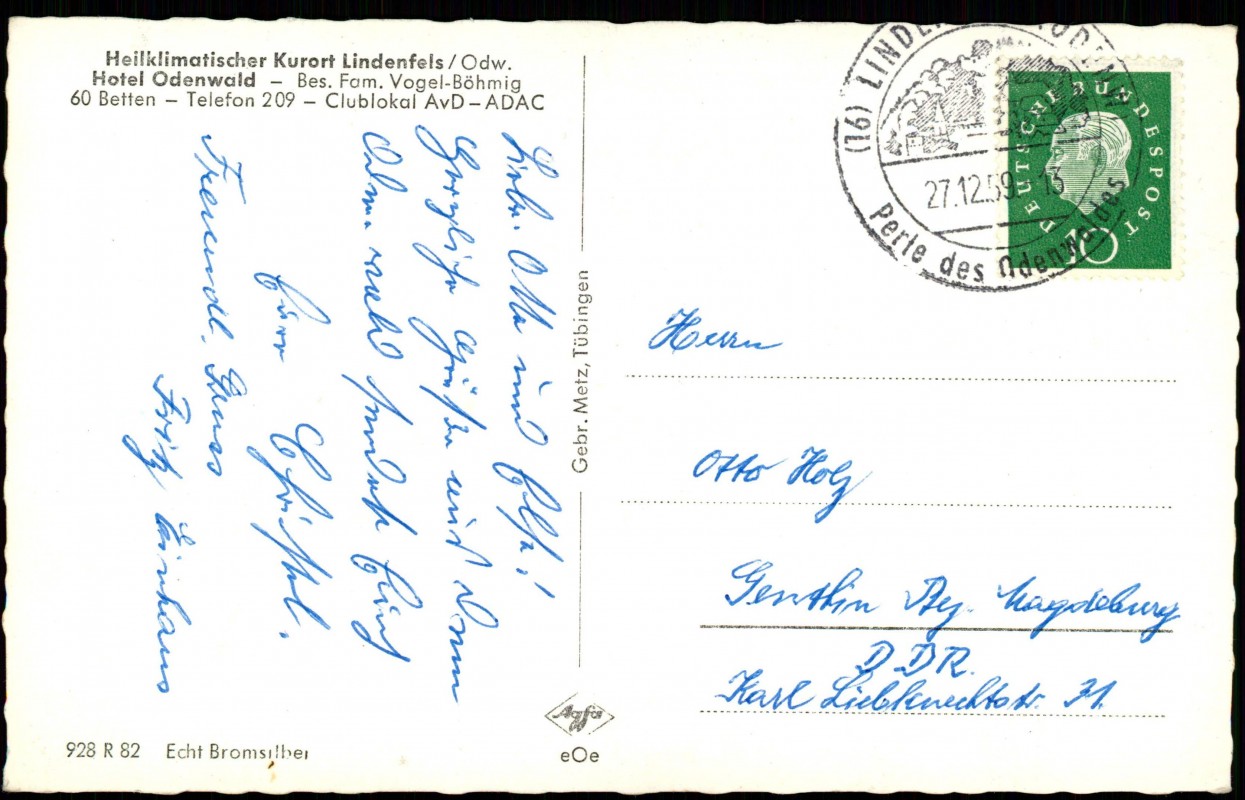 Heilklimatischer Kurort Lindenfels / Odw.
Hotel Odenwald – Bes. Fam. Vogel-Böhmig
60 Betten – Telefon 209 – Clublokal AvD – ADAC
Liebe Otto und Elsa!
Herzliche Grüße und
sendet Euch
Eure Christel.
Freundl. Gruss
Fritz
Gebr. Metz, Tübingen
Agfa
eOe
928 R 82 Echt Bromsilber
(16) LINDEN
27.12.59.-13
Perle des Odenwaldes
DEUTSCHE BUNDESPOST
10
Herrn
Otto Holz
Genthin Bez. Magdeburg
DDR.
Karl Liebknechtstr. 31.